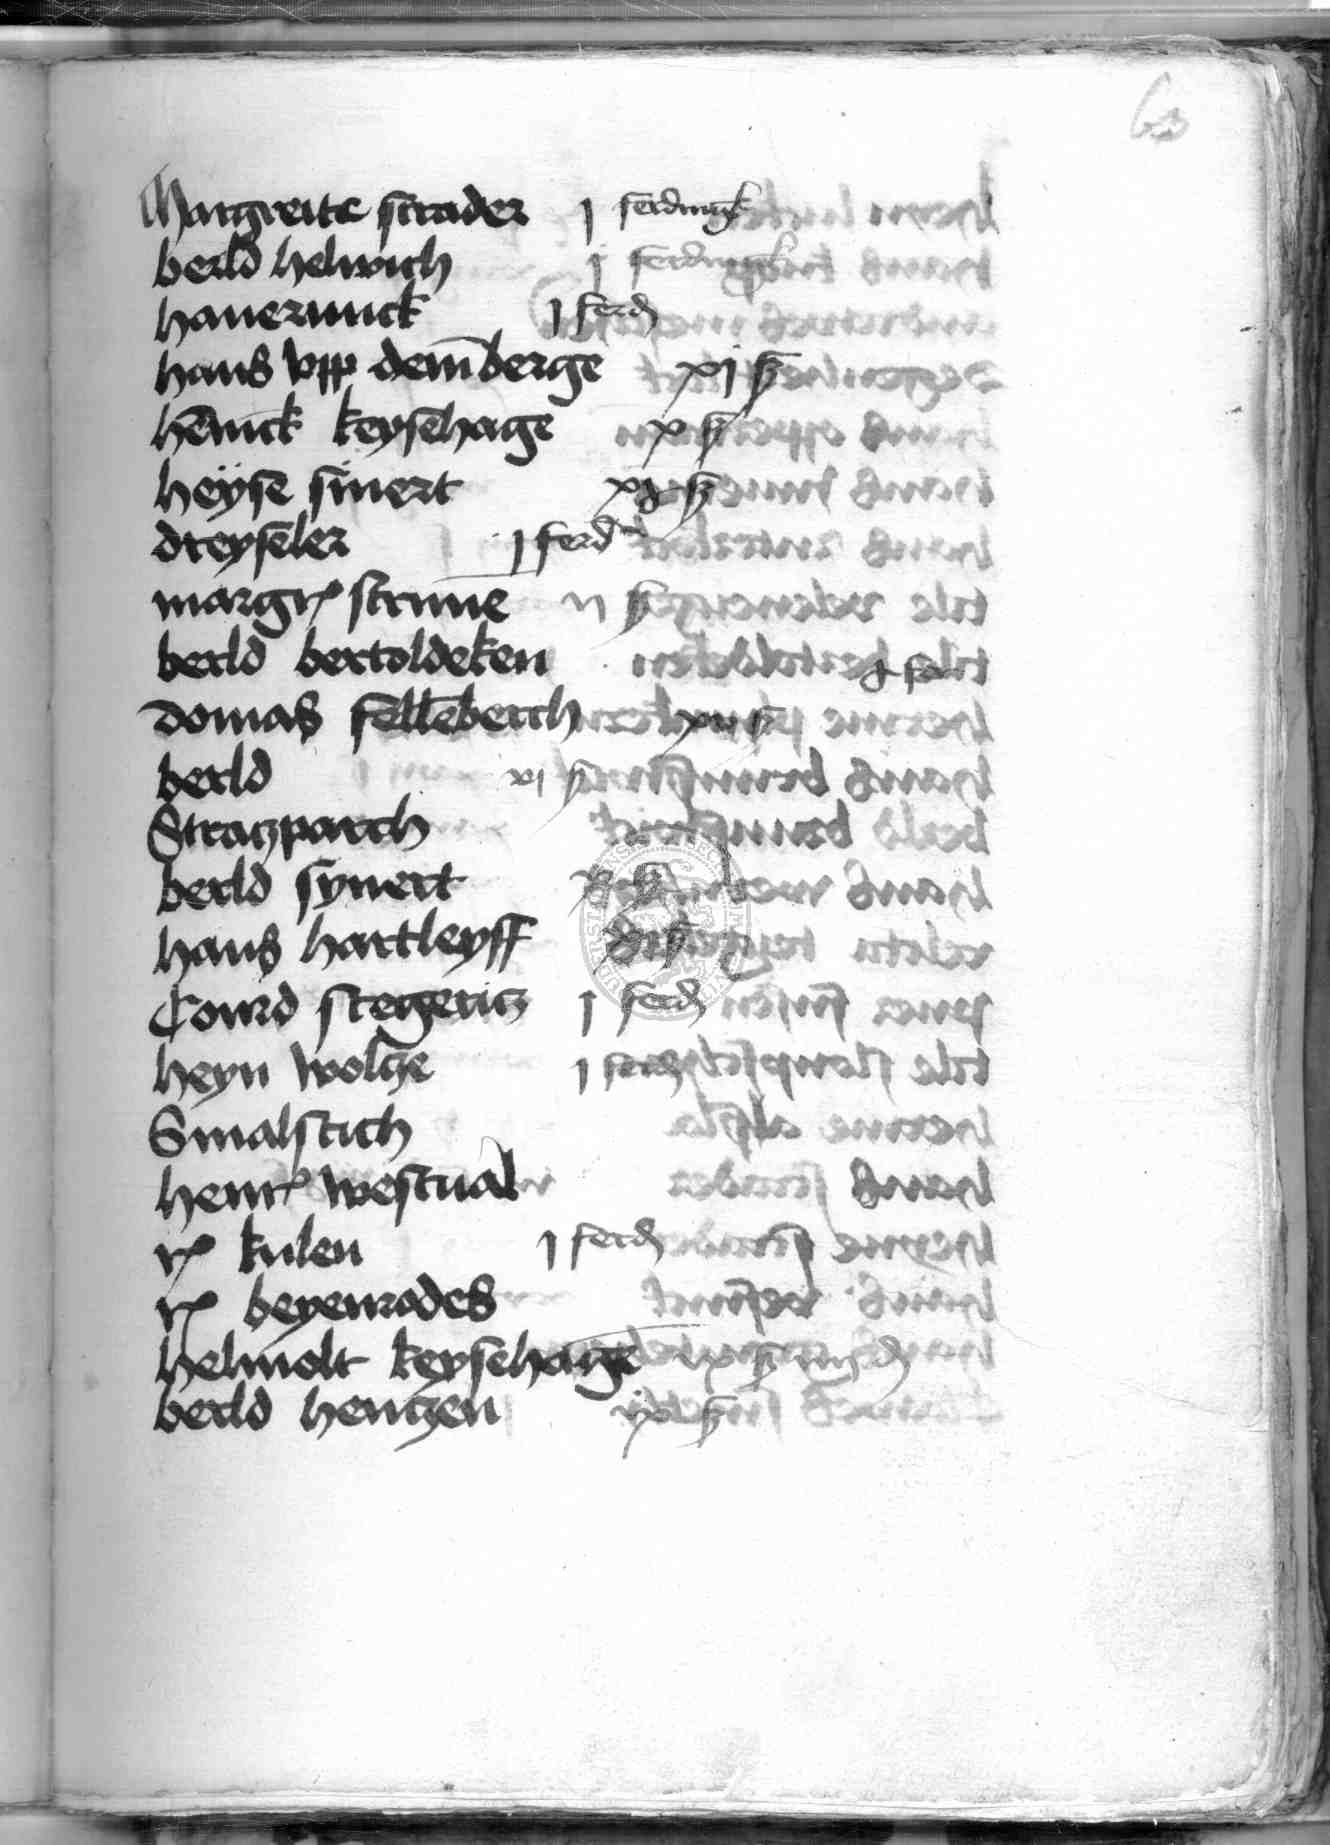 63
Margreite scrader j ferdingk
berld helwich j ferdingk
hauermick j ferd
hans vpp dem berge xj ß
hēnick keysehage x ß
heyse sinert xj ß
dreyseler j ferd
margr scrime vj ß
berld bertoldeken j fer
domas felleberch xvj ß
berld vj ß
Straczparch
berld synert x ß
hans hartleyff ß
Courd stegericz j ferd
heyn wolcze j ferd
Smalstich
henr westual
r kulen j ferd
r beyenrodes
helmolt keysehage ix ß iiij d
berld henczen ix ß